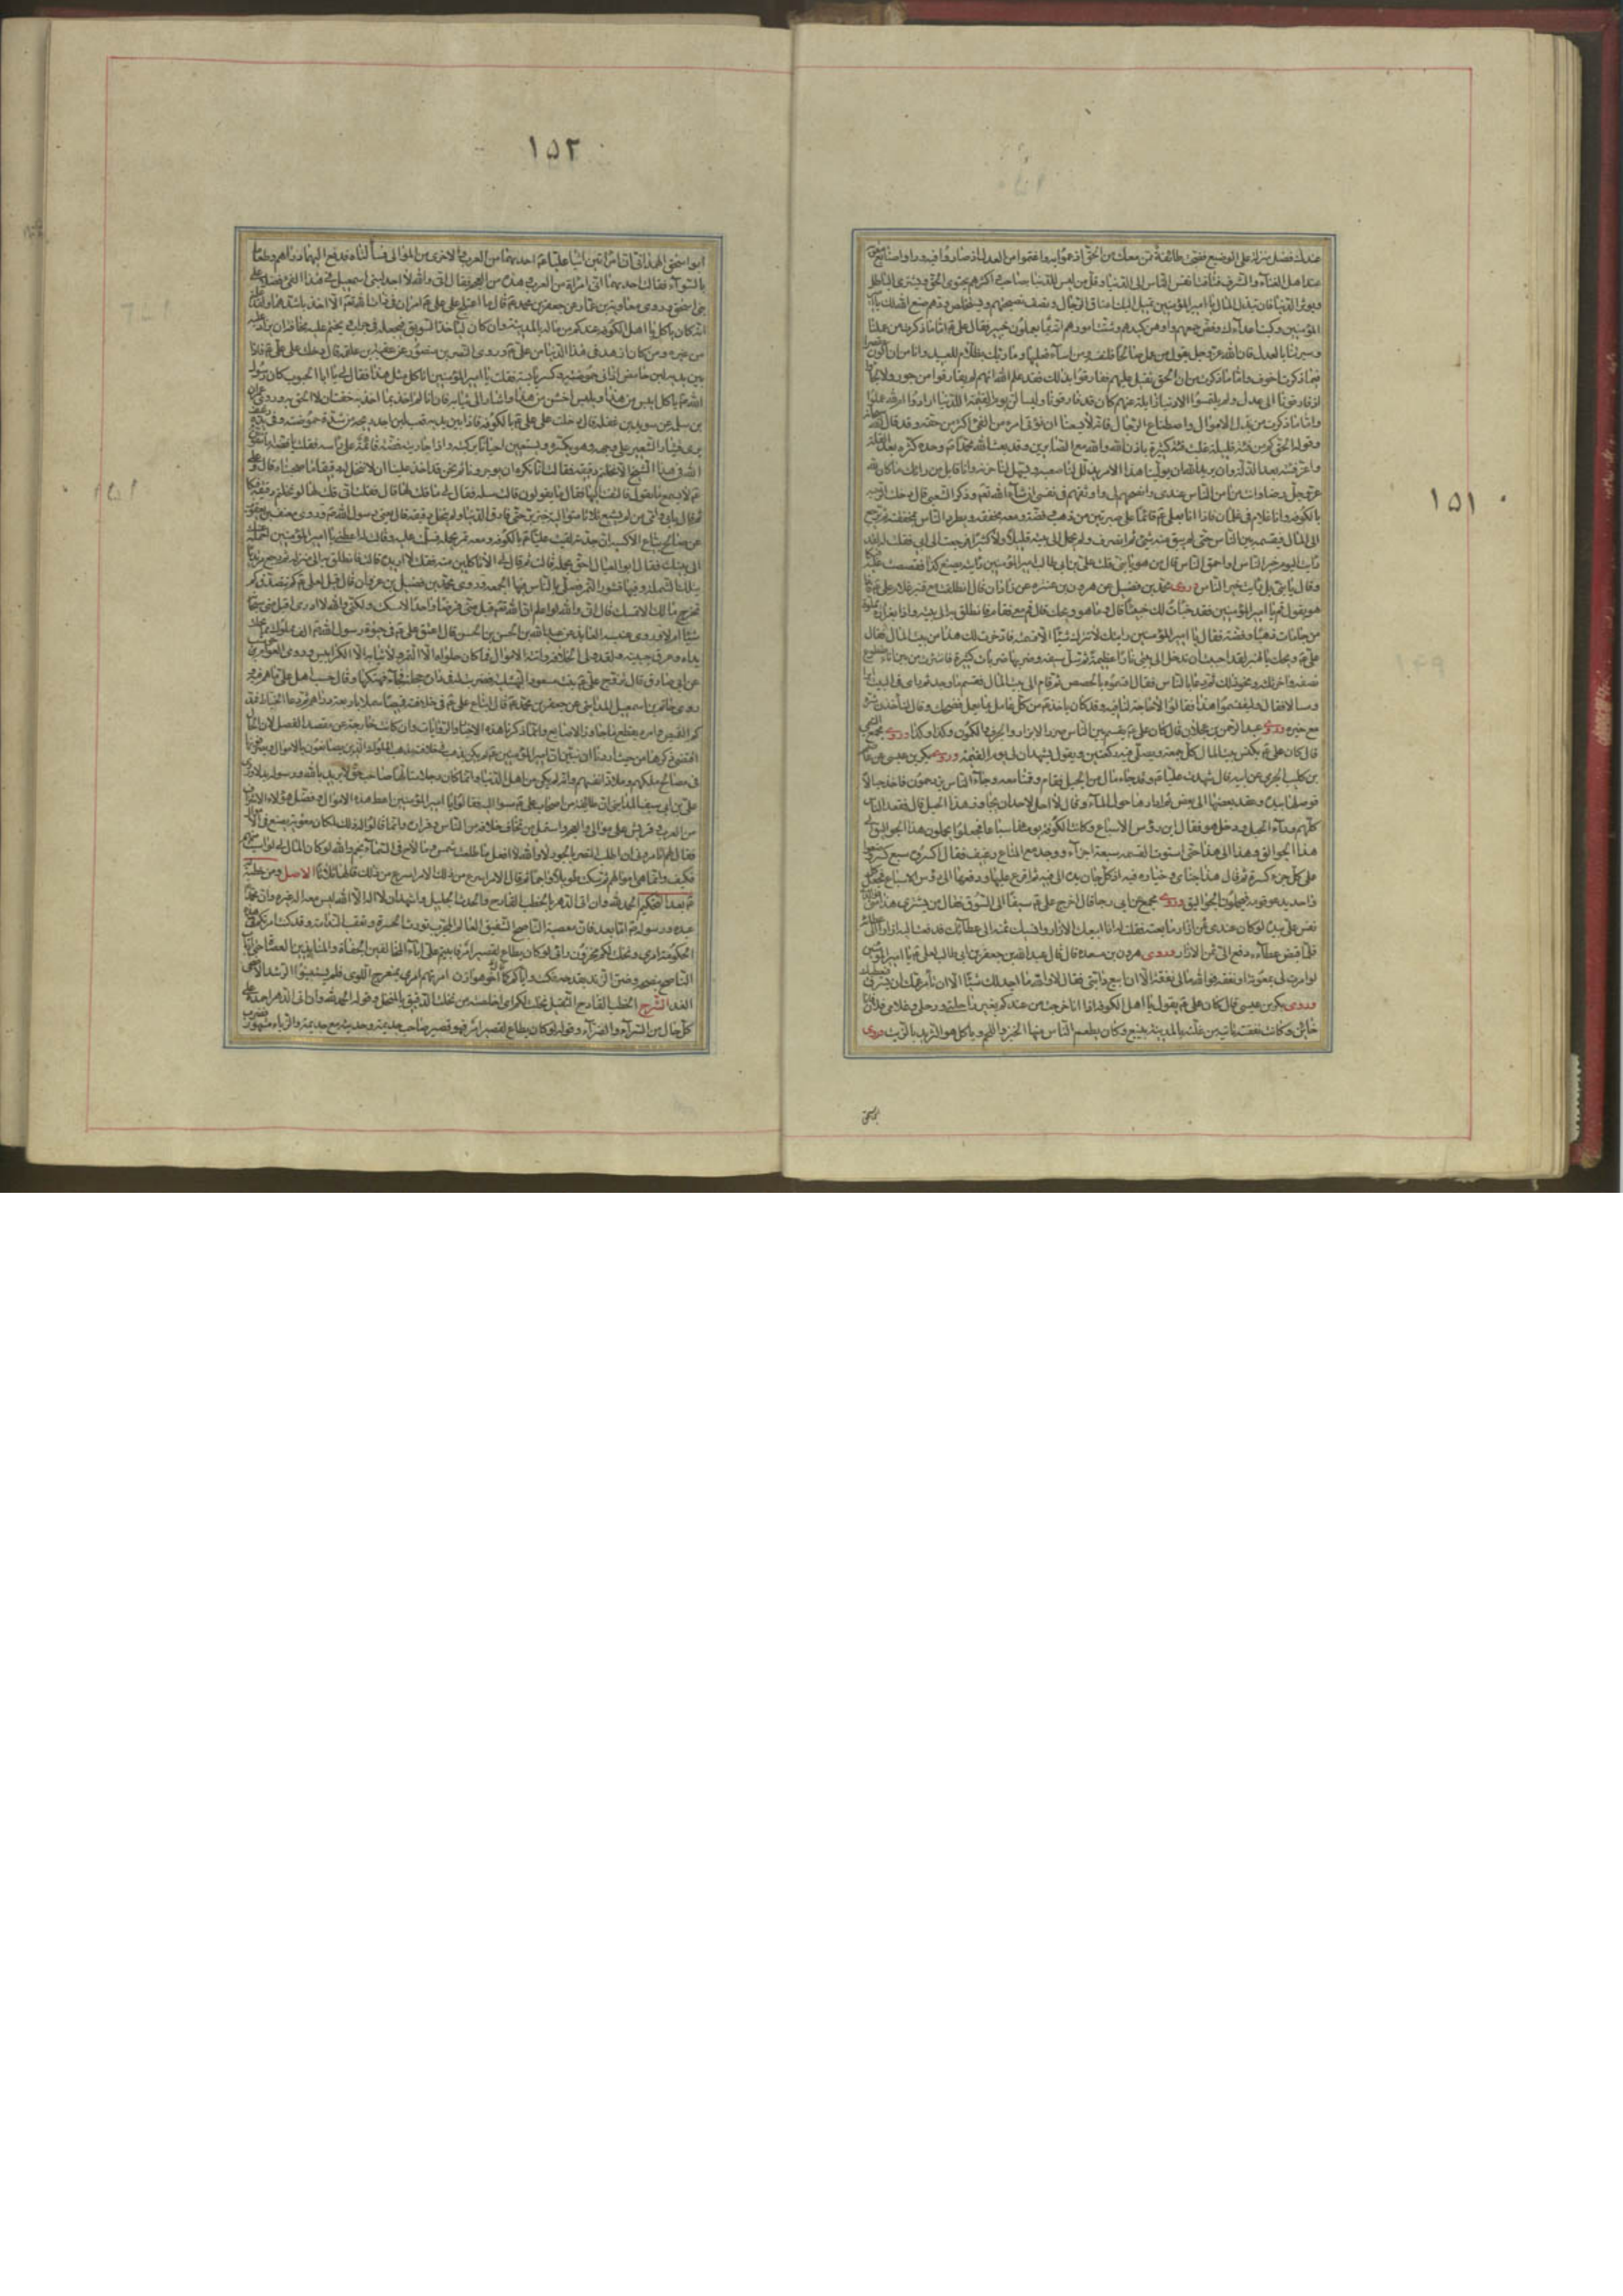 ١٥١
عندك فضل منزلة على الوضيع فضجت طائفة ممن معك من الحق اذ عموا به واغتموا من العدل اذ صاروا فيه وراوا صنايع معوية
عند اهل الغناء والشرف فتاقت انفس الناس الى الدنيا وقل من ليس للدنيا بصاحب واكثرهم يجتوى الحق ويشترى الباطل
ويوثر الدنيا فان تبذل المال يا امير المؤمنين تميل اليك اعناق الرجال وتصف نصيحتهم ويستخلص ودهم صنع الله لك يا امير
المؤمنين وكبت اعداءك وفض جمعهم واوهن كيدهم وشتت امورهم انه بما يعملون خبير فقال على ع اما ما ذكرت من عملنا
وسيرتنا بالعدل فان الله عز وجل يقول من عمل صالحا فلنفسه ومن اساء فعليها وما ربك بظلام للعبيد وانا من ان اكون مقصرا
فيما ذكرت اخوف واما ما ذكرت من ان الحق ثقيل عليهم ففارقونا بذلك فقد علم الله انهم لم يفارقونا من جور ولا لجأوا
اذ فارقونا الى عدل ولم يلتمسوا الا دنيا زائلة عنهم كان قد فارقوها وليسالن يوم القيمة اللدنيا ارادوا ام لله عملوا
واما ما ذكرت من بذل الاموال واصطناع الرجال فانه لا يسعنا ان نؤتى امرء من الفئ اكثر من حقه وقد قال الله سبحانه
وقوله الحق كم من فئة قليلة غلبت فئة كثيرة باذن الله والله مع الصابرين وقد بعث الله محمدا ص وحده فكثره بعد القلة
واعز فئته بعد الذلة وان يرد الله ان يولينا هذا الامر يذلل لنا صعبه ويسهل لنا حزنه وانا قابل من رايك ما كان لله
عز وجل رضا وانت من امن الناس عندى وانصحهم لى واوثقهم فى نفسى ان شاء الله تعم وذكر الشعبى قال دخلت الرحبة
بالكوفة وانا غلام فى غلمان فاذا انا بعلى ع قائما على صبرتين من ذهب وفضة ومعه مخفقة وهو يطرد الناس بمخفقته ثم يرجع
الى المال فيقسمه بين الناس حتى لم يبق منه شئ ثم انصرف ولم يحمل الى بيته قليلا ولا كثيرا فرجعت الى ابى فقلت له لقد
رايت اليوم خير الناس او احمق الناس قال من هو يا بنى قلت على بن ابى طالب امير المؤمنين رايته يصنع كذا فقصصت عليه فبكى
وقال يا بنى بل رايت خير الناس وروى محمد بن فضيل عن هرون بن عنترة عن زاذان قال انطلقت مع قنبر غلام على ع فاذا
هو يقول قم يا امير المؤمنين فقد خبات لك خبيئا قال وما هو ويحك قال قم معى فقام فانطلق به الى بيته واذا بغرارة مملوة
من جامات ذهبا وفضة فقال يا امير المؤمنين رايتك لا تترك شيئا الا قسمته فادخرت لك هذا من بيت المال فقال
على ع ويحك يا قنبر لقد احببت ان تدخل الى بيتى نارا عظيمة ثم سل سيفه وضربها ضربات كثيرة فانتثرت من بين اناء مقطوع
نصفه واخر ثلثه ونحو ذلك ثم دعا بالناس فقال اقسموه بالحصص ثم قام الى بيت المال فقسم ما وجد فيه ثم راى فى البيت ابرا
ومسالا فقال وليقسموا هذا فقالوا لا حاجة لنا فيه وقد كان ياخذه من كل عامل مما يعمل فضحك وقال لتاخذن شره
مع خيره وروى عبد الرحمن بن عجلان قال كان على ع يقسم بين الناس الابزار والحرف والكمون وكذا وكذا وروى مجمع التيمى
قال كان على ع يكنس بيت المال كل جمعة ويصلى فيه ركعتين ويقول ليشهد لى يوم القيمة وروى بكر بن عيسى عن عاصم
بن كليب الجرمى عن ابيه قال شهدت عليا ع وقد جاءه مال من الجبل فقام وقمنا معه وجاء الناس يزدحمون فاخذ حبالا
فوصلها بيده وعقد بعضها الى بعض ثم ادارها حول المال وقال لا احل لاحد ان يجاوز هذا الحبل قال فقعد الناس
كلهم وراء الحبل ودخل هو فقال اين رؤس الاسباع وكانت الكوفة يومئذ اسباعا فجعلوا يحملون هذا الجوالق الى
هذا الجوالق وهذا الى هذا حتى استوت القسمة سبعة اجزاء ووجد مع المتاع رغيف فقال اكسروه سبع كسر وضعوا
على كل جزء كسرة ثم قال هذا جناى وخياره فيه اذ كل جان يده الى فيه ثم اقرع عليها ودفعها الى رؤس الاسباع فجعل كل
واحد يدعو قومه فيحملون الجواليق وروى مجمع عن ابى رجا قال اخرج على ع سيفا الى السوق فقال من يشترى هذا فوالذى
نفس على بيده لو كان عندى ثمن ازار ما بعته فقلت له انا ابيعك الازار وانسيك ثمنه الى عطائك فدفعت اليه ازارا الى عطائه
فلما قبض عطاءه دفع الى ثمن الازار وروى هرون بن سعد قال قال عبد الله بن جعفر بن ابى طالب لعلى ع يا امير المؤمنين
لو امرت لى بمعونة او نفقة فوالله مالى نفقة الا ان ابيع دابتى فقال لا والله ما اجد لك شيئا الا ان تامر عمك ان يسرق فيعطيك
وروى بكر بن عيسى قال كان على ع يقول يا اهل الكوفة اذا انا خرجت من عندكم بغير راحلتى ورحلى وغلامى فلان فانا
خائن وكانت نفقته تاتيه من غلته بالمدينة بينبع وكان يطعم الناس منها الخبز واللحم وياكل هو الثريد بالزيت وروى
١٥٢
ابو اسحق الهمدانى ان امراتين اتتا عليا ع احديهما من العرب والاخرى من الموالى فسالتاه فدفع اليهما دراهم وطعاما
بالسواء فقالت احديهما انى امراة من العرب وهذه من العجم فقال انى والله لا اجد لبنى اسمعيل فى هذا الفئ فضلا على
بنى اسحق وروى معاوية بن عمار عن جعفر بن محمد ع قال ما اعتلج على على ع امران فى ذات الله تعم الا اخذ باشدهما ولقد علمتم
انه كان ياكل يا اهل الكوفة عندكم من ماله بالمدينة وان كان لياخذ السويق فيجعله فى جراب ويختم عليه مخافة ان يزاد عليه
من غيره ومن كان ازهد فى هذا الدنيا من على ع وروى النضر بن منصور عن عقبة بن علقمة قال دخلت على على ع فاذا
بين يديه لبن حامض اذانى حموضته وكسر يابسة فقلت يا امير المؤمنين اتاكل مثل هذا فقال لى يا ابا الجنوب كان رسول
الله ص ياكل ايبس من هذا ويلبس اخشن من هذا واشار الى ثيابه فان انا لم اخذ بما اخذ به خفت ان لا الحق به وروى عمران
بن مسلمة عن سويد بن غفلة قال دخلت على على ع بالكوفة فاذا بين يديه قعب لبن اجد ريحه من شدة حموضته وفى يده رغيف
يرى قشار الشعير على وجهه وهو يكسره ويستعين احيانا بركبته واذا جاريته فضة قائمة على راسه فقلت يا فضة اما تتقون
الله فى هذا الشيخ الا نخلتم دقيقه فقالت انا نكره ان يوجر وناثم نحن قد اخذ علينا ان لا ننخل له دقيقا ما صحبناه قال وعلى
ع لا يسمع ما تقول فالتفت اليها فقال ما تقولين قالت سله فقال لى ما قلت لها قال فقلت انى قلت لها لو نخلتم دقيقه فبكى
ثم قال بابى وامى من لم يشبع ثلاثا متوالية من خبز بر حتى فارق الدنيا ولم ينخل دقيقه قال يعنى رسول الله ص وروى يوسف بن يعقوب
عن صالح بياع الاكسية ان جدته لقيت عليا ع بالكوفة ومعه تمر يحمله فسلمت عليه وقالت له اعطنى يا امير المؤمنين احمله عنك
الى بيتك فقال ابو العيال احق بحمله قالت ثم قال لى الا تاكلين منه فقلت لا اريد قالت فانطلق به الى منزله ثم رجع مرتديا
بتلك الشملة وفيها قشور التمر فصلى بالناس فيها الجمعة وروى محمد بن فضيل بن غزوان قال قيل لعلى ع كم تتصدق كم
تخرج مالك الا تمسك قال انى والله لو اعلم ان الله تعم قبل منى فرضا واحدا لامسكت ولكنى والله لا ادرى اقبل منى سبحانه
شيئا ام لا وروى عنبسة العابد عن عبد الله بن الحسن بن الحسن قال اعتق على ع فى حيوة رسول الله ص الف مملوك مما مجلت
يداه وعرق جبينه ولقد ولى الخلافة واتته الاموال فما كان حلواه الا التمر ولا ثيابه الا الكرابيس وروى العوام بن حوشب
عن ابى صادق قال تزوج على ع ليلى بنت مسعود النهشلية فضربت له فى داره حجلة فجاء فهتكها وقال حسب اهل على ما هم فيه
وروى حاتم بن اسمعيل المدائنى عن جعفر بن محمد ع قال ابتاع على ع فى خلافته قميصا سملا باربعة دراهم ثم دعا الخياط فمد
كم القميص وامره بقطع ما جاوز الاصابع وانما ذكرنا هذه الاخبار والروايات وان كانت خارجة عن مقصد الفصل لان الحال
اقتضى ذكرها من حيث اردنا ان نبين ان امير المؤمنين ع لم يكن يذهب فى خلافته مذهب الملوك الذين يصانعون بالاموال ويصرفونها
فى مصالح ملكهم وملاذ انفسهم وانه لم يكن من اهل الدنيا وانما كان رجلا متالها صاحب حق لا يريد بالله ورسوله بدلا وروى
على بن ابى سيف المداينى ان طائفة من اصحاب على ع مشوا اليه فقالوا يا امير المؤمنين اعط هذه الاموال وفضل هؤلاء الاشراف
من العرب وقريش على الموالى والعجم واستمل من تخاف خلافه من الناس وفراره وانما قالوا له ذلك لما كان معوية يصنع فى المال
فقال لهم اتامرونى ان اطلب النصر بالجور لا والله لا افعل ما طلعت شمس وما لاح فى السماء نجم والله لو كان المال لى لواسيت بينهم
فكيف وانما هى اموالهم ثم سكت طويلا واجما ثم قال الامر اسرع من ذلك الامر اسرع من ذلك قالها ثلاثا الاصل ومن خطبة له
ع بعد التحكيم الحمد لله وان اتى الدهر بالخطب الفادح والحدث الجليل واشهد ان لا اله الا الله ليس معه اله غيره وان محمدا
عبده ورسوله ص اما بعد فان معصية الناصح الشفيق العالم المجرب تورث الحسرة وتعقب الندامة وقد كنت امرتكم فى هذه
الحكومة امرى ونخلت لكم مخزون رايى لو كان يطاع لقصير امر فابيتم على اباء المخالفين الجفاة والمنابذين العصاة حتى ارتاب
الناصح بنصحه وضن الزند بقدحه فكنت واياكم كما قال اخو هوازن امرتهم امرى بمنعرج اللوى فلم يستبينوا الرشد الا ضحى
الغد الشرح الخطب الفادح الثقيل نخلت لكم اى اخلصته من نخلت الدقيق بالمنخل وقوله الحمد لله وان اتى الدهر اى احمده على
كل حال من السراء والضراء وقوله لو كان يطاع لقصير امر فهو قصير صاحب جذيمة وحديثه مع جذيمة والزباء مشهور فضرب